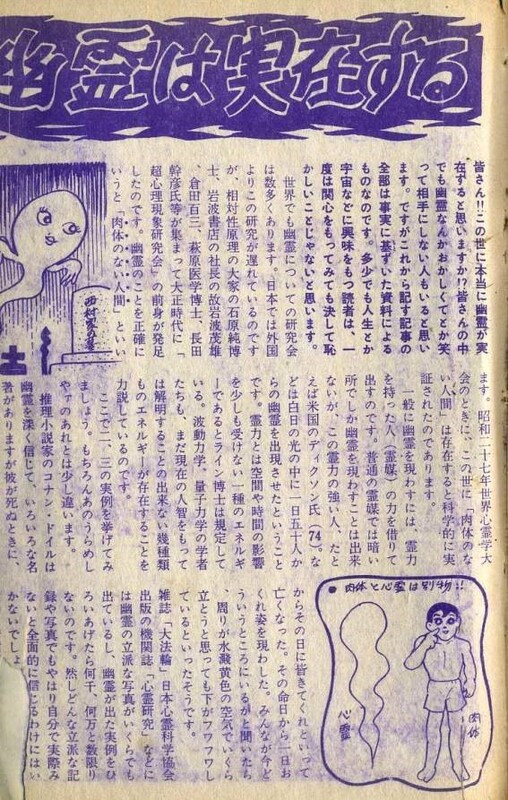 幽霊は実在する
皆さん!!この世に本当に幽霊が実
在すると思いますか!?皆さんの中
でも幽霊なんかおかしくてとか笑
って相手にしない人もいると思い
ます。ですがこれから記す記事の
全部は事実に基ずいた資料による
ものなのです。多少でも人生とか
宇宙などに興味をもつ読者は、一
度は関心をもってみても決して恥
かしいことじゃないと思います。
世界でも幽霊についての研究会
は数多くあります。日本では外国
よりこの研究が遅れているのです
が、相対性原理の大家の石原純博
士、岩波書店の社長の故岩波茂雄
、倉田百三、萩原医学博士、長田
幹彦氏等が集まって大正時代に「
超心理現象研究会」の前身が発足
したのです。幽霊のことを正確に
いうと「肉体のない人間」といい
ます。昭和二十七年世界心霊学大
会のときに、この世に「肉体のな
い人間」は存在すると科学的に実
証されたのであります。
一般に幽霊を現わすには、霊力
を持った人(霊媒)の力を借りて
出すのです。普通の霊媒では暗い
所でしか幽霊を現わすことは出来
ないが、この霊力の強い人、たと
えば米国のディクソン氏(74)。な
どは白日の光の中に一日五十人か
らの幽霊を出現させたということ
です。霊力とは空間や時間の影響
を少しも受けない一種のエネルギ
ーであるとライン博士は規定して
いる。波動力学、量子力学の学者
たちも、まだ現在の人智をもって
は解明することの出来ない幾種類
ものエネルギーが存在することを
力説しているのです。
ここで二、三の実例を挙げてみ
ましょう。もちろんあのうらめし
やァのあれとは少し違います。
推理小説家のコナン・ドイルは
幽霊を深く信じて、いろいろな名
著がありますが彼が死ぬときに、
からその日に皆きてくれといって
亡くなった。その命日から一日お
くれ姿を現わした。みんなが今ど
ういうところにいるかと聞いたら
、周りが水濺黄色の空気でいくら
立とうと思っても下がフワフワし
ているといったそうです。
雑誌「大法輪」日本心霊科学協会
出版の機関誌「心霊研究」などに
は幽霊の立派な写真がいくらでも
出ているし、幽霊が出た実例をひ
ろいあげたら何千、何万と数限り
ないのです。然しどんな立派な記
録や写真でもやはり自分で実際み
ないと全面的に信じるわけにはい
かないでしょ
●肉体と心霊は別物!!
肉体
心霊